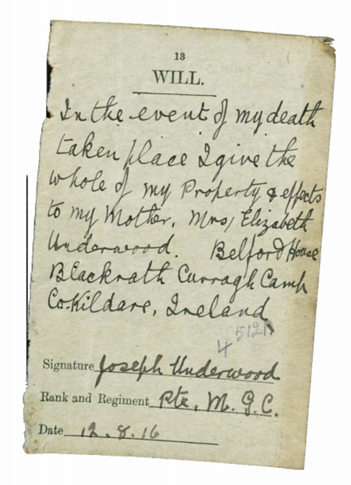 13
WILL.
In the event of my death
taken place I give the
whole of my Property & effects
to my Mother, Mrs, Elizabeth
Underwood. Belford House
Blackrath Curragh Camp
Co. Kildare, Ireland
4 5121
Signature Joseph Underwood
Rank and Regiment Pte, M. G. C.
Date 12.8.16